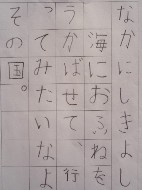 なかにしきよし
海におふねを
うかばせて、行
ってみたいなよ
その国。